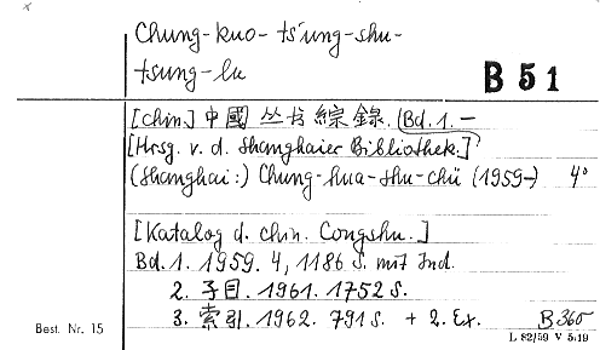 Chung-kuo-ts'ung-shu-
tsung-lu
B 51
[chin.] 中國丛书綜錄. (Bd. 1. –
[Hrsg. v. d. Shanghaier Bibliothek.]
(Shanghai:) Chung-hua-shu-chü (1959–) 4°
[Katalog d. chin. Congshu.]
Bd. 1. 1959. 4, 1186 S. mit Ind.
2. 子目. 1961. 1752 S.
3. 索引. 1962. 791 S. + 2. Ex. B 360
Best. Nr. 15
L 82/59 V 5.19